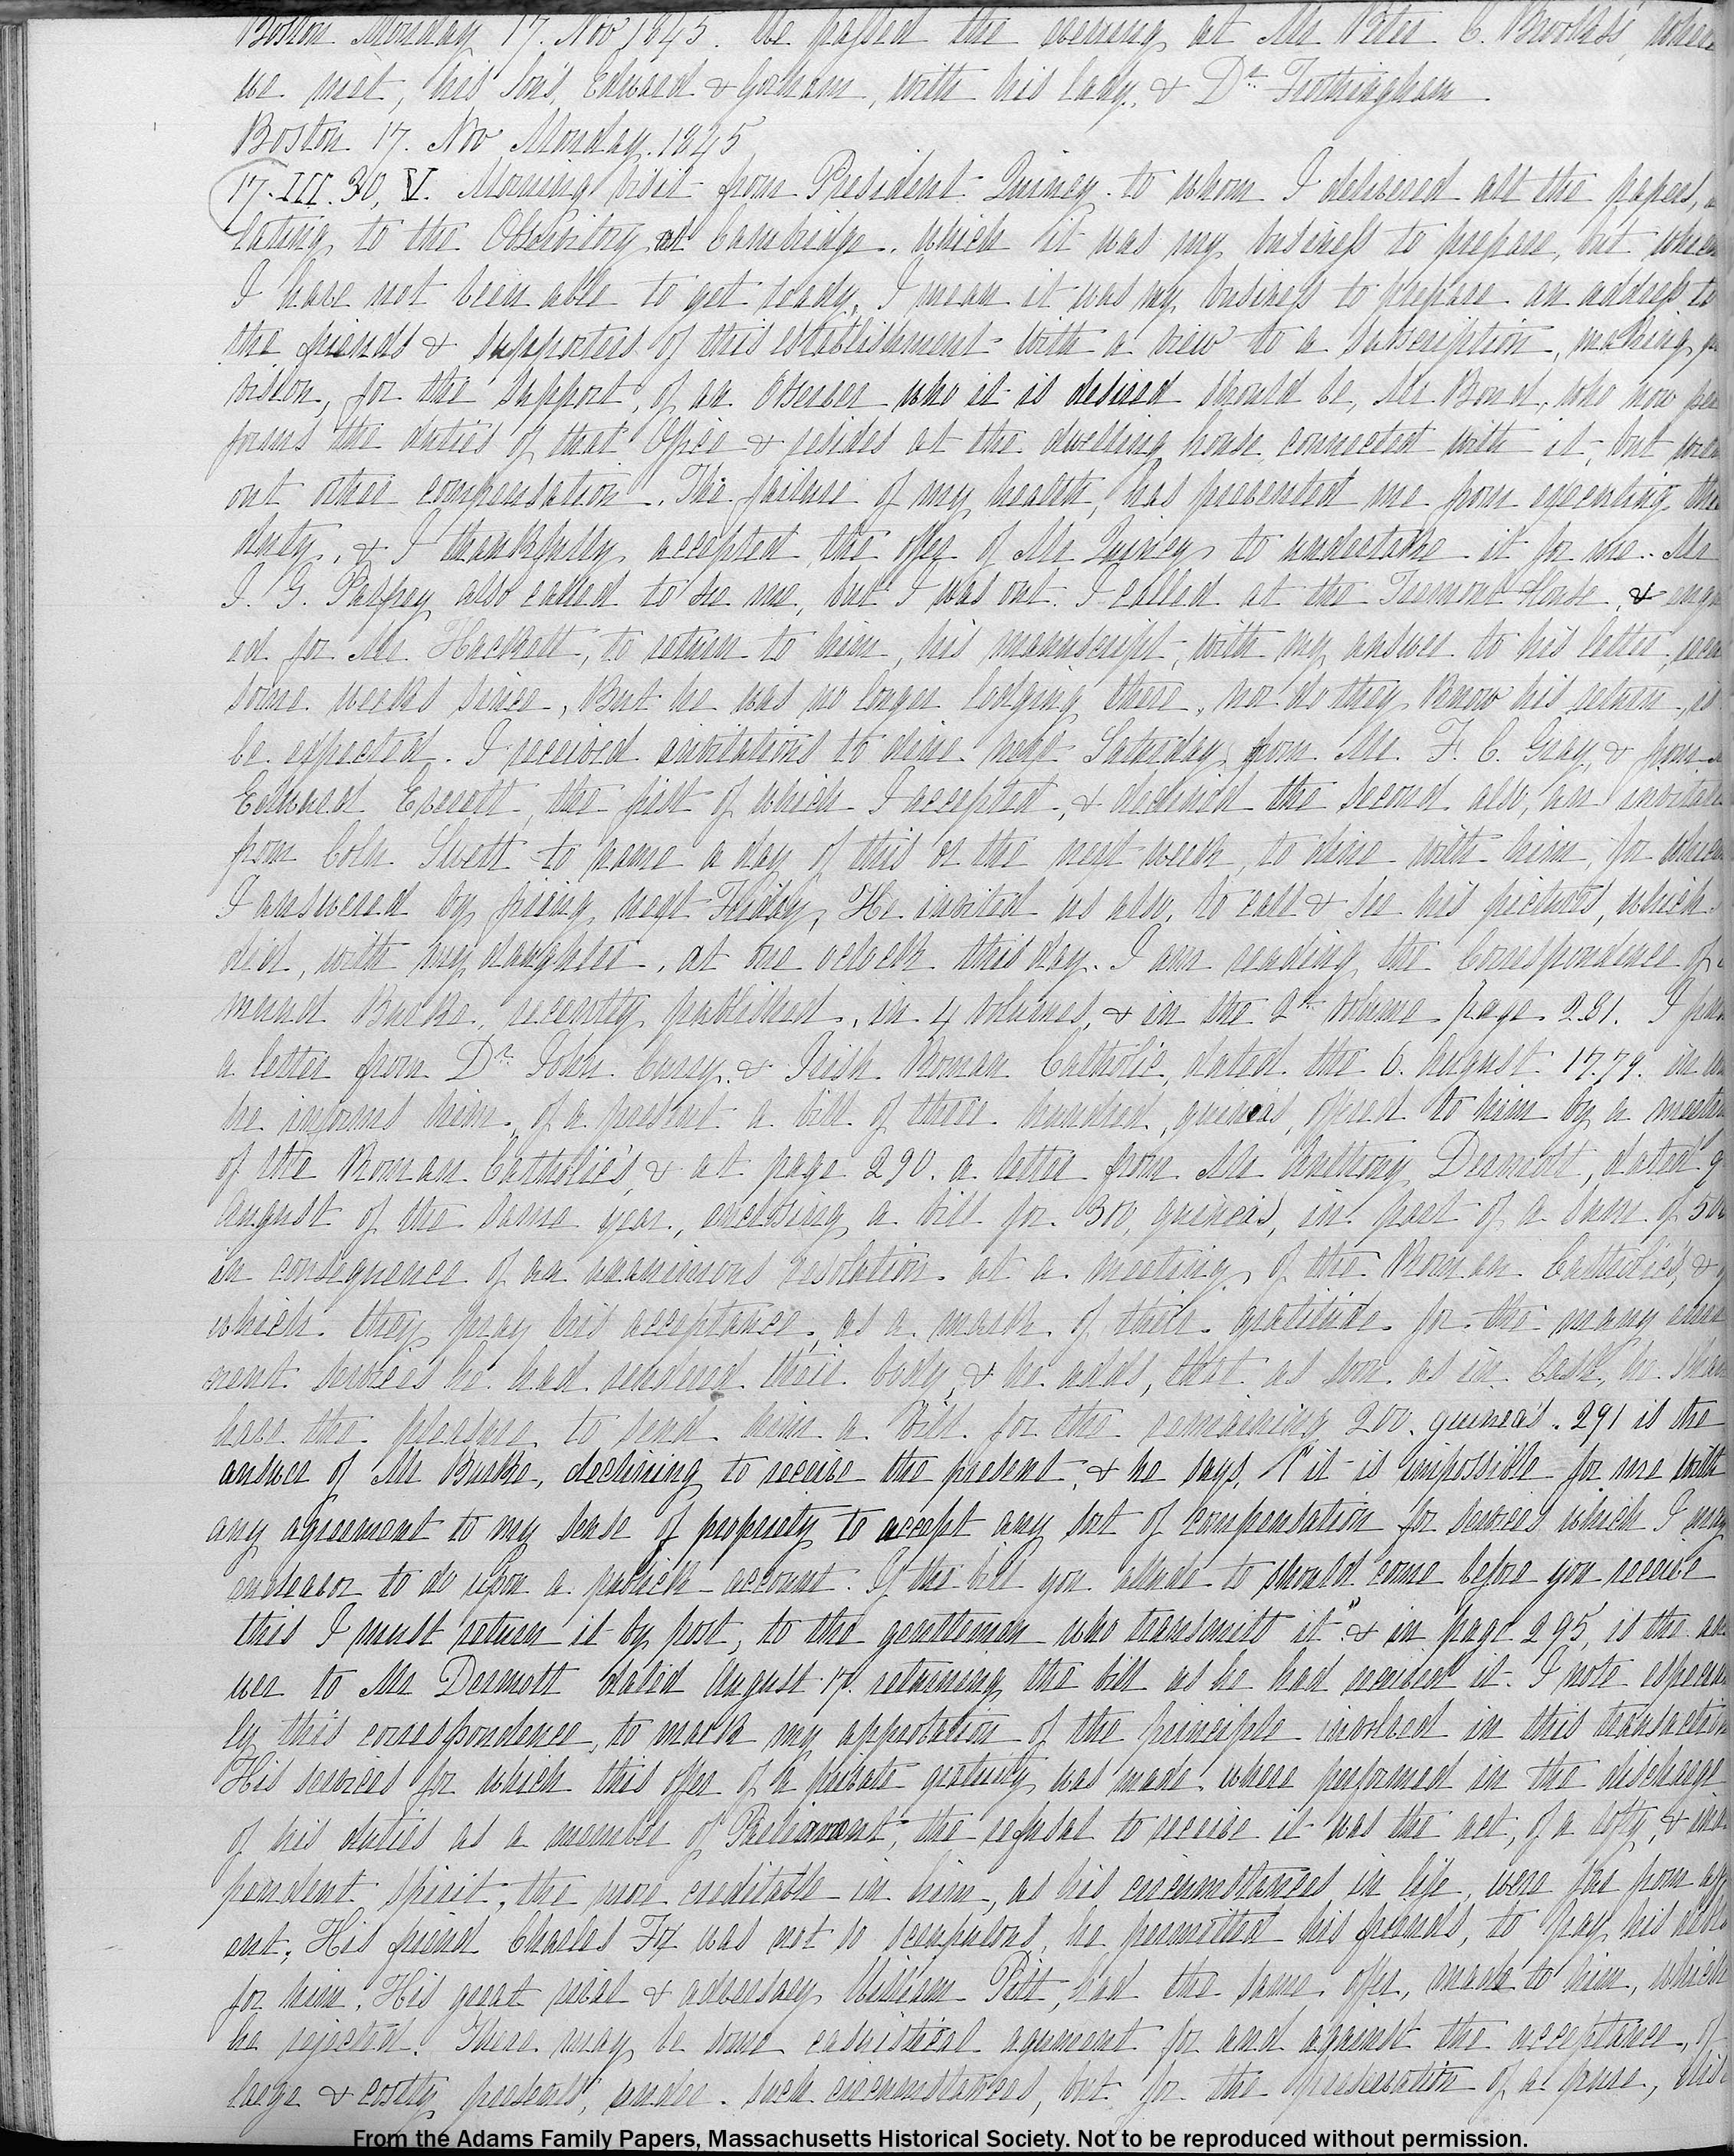 Boston Monday 17. Nov 1845. We passed the evening at Mr Peter C. Brooks's, where
we met, his Sons, Edward & Gorham, with his lady, & Dr. Frothingham.
Boston 17. Nov Monday. 1845
17. III.30, V. Morning visit from President Quincy to whom I delivered all the papers,
lating to the Observatory at Cambridge. which it was my business to prepare, but which
I have not been able to get ready, I mean it was my business to prepare an address to
the friends & supporters of this establishment with a view to a subscription, making
vision, for the support, of an Observer who it is desired should be, Mr Bond, who now per
forms the duties of that Office & resides at the dwelling house connected with it, but with
out other compensation. The failure of my health, has prevented me from executing this
duty, & I thankfully accepted the offer of Mr Quincy to undertake it for me. Mr
J. G. Palfrey also called to see me, but I was out. I called at the Tremont House, & enqu
ed for Mr Hackett, to return to him, his manuscript, with my answer to his letter,
some weeks since, But he was no longer lodging there, nor do they know his return, is
be expected. I received invitations to dine next Saturday from Mr. F. C. Gray, & from
Edward Everett, the first of which I accepted, & declined the second also, an invitation
from Coln Swett to name a day of this or the next week, to dine with him, for which
I answered by fixing next Friday, He invited us also, to call & see his pictures, which
did, with my daughter, at one oclock this day. I am reading the Correspondence of
mund Burke, recently published, in 4 volumes, & in the 2d. volume page 281. I
a letter from Dr. John Curry. & Irish Roman Catholic, dated the 6. August 1779. in
he informs him, of a present a bill of three hundred, guineas, offered to him by a meeting
of the Roman Catholic's, & at page 290. a letter from Mr Anthony Dermott, dated
August of the same year, enclosing a bill for 300, guineas, in part of a sum of 500
in consequence of an unanimous resolution at a meeting, of the Roman Catholic's, &
which they pray his acceptance, as a mark of their gratitude for the many
nent services he had rendered their body, & he adds, that as soon as in Cash, he shall
have the pleasure to send him a Bill for the remaining 200. guineas. 291 is the
answer of Mr Burke, declining to receive the present, & he says, "it is impossible for me with
any agreement to my sense of propriety to accept any sort of compensation for services which I may
endeavor to do upon a publick account. If the bill you allude to should come before you receive
this I must return it by post, to the gentleman who transmitt it" & in page 295, is the
wer to Mr Dermott dated August 17. returning the bill as he had received it. I note especial
ly this correspondence, to mark my approbation of the principle involved in this transaction
His services for which this offer of a private gratuity was made, where performed in the discharge
of his duties as a member of Parliament, the refusal to receive it was the act, of a lofty, & inde
pendent spirit, the more creditable in him, as his circumstances in life, were far from
ent, His friend Charles Fox was not so scrupulous, he permitted his friends, to pay his debts
for him. His great rival & adversary William Pitt, had the same offer, made to him, which
he rejected. There may be some casuistical argument for and against the acceptance, of
large & costly presents, under such circumstances, but for the preservation of a pure,
From the Adams Family Papers, Massachusetts Historical Society. Not to be reproduced without permission.